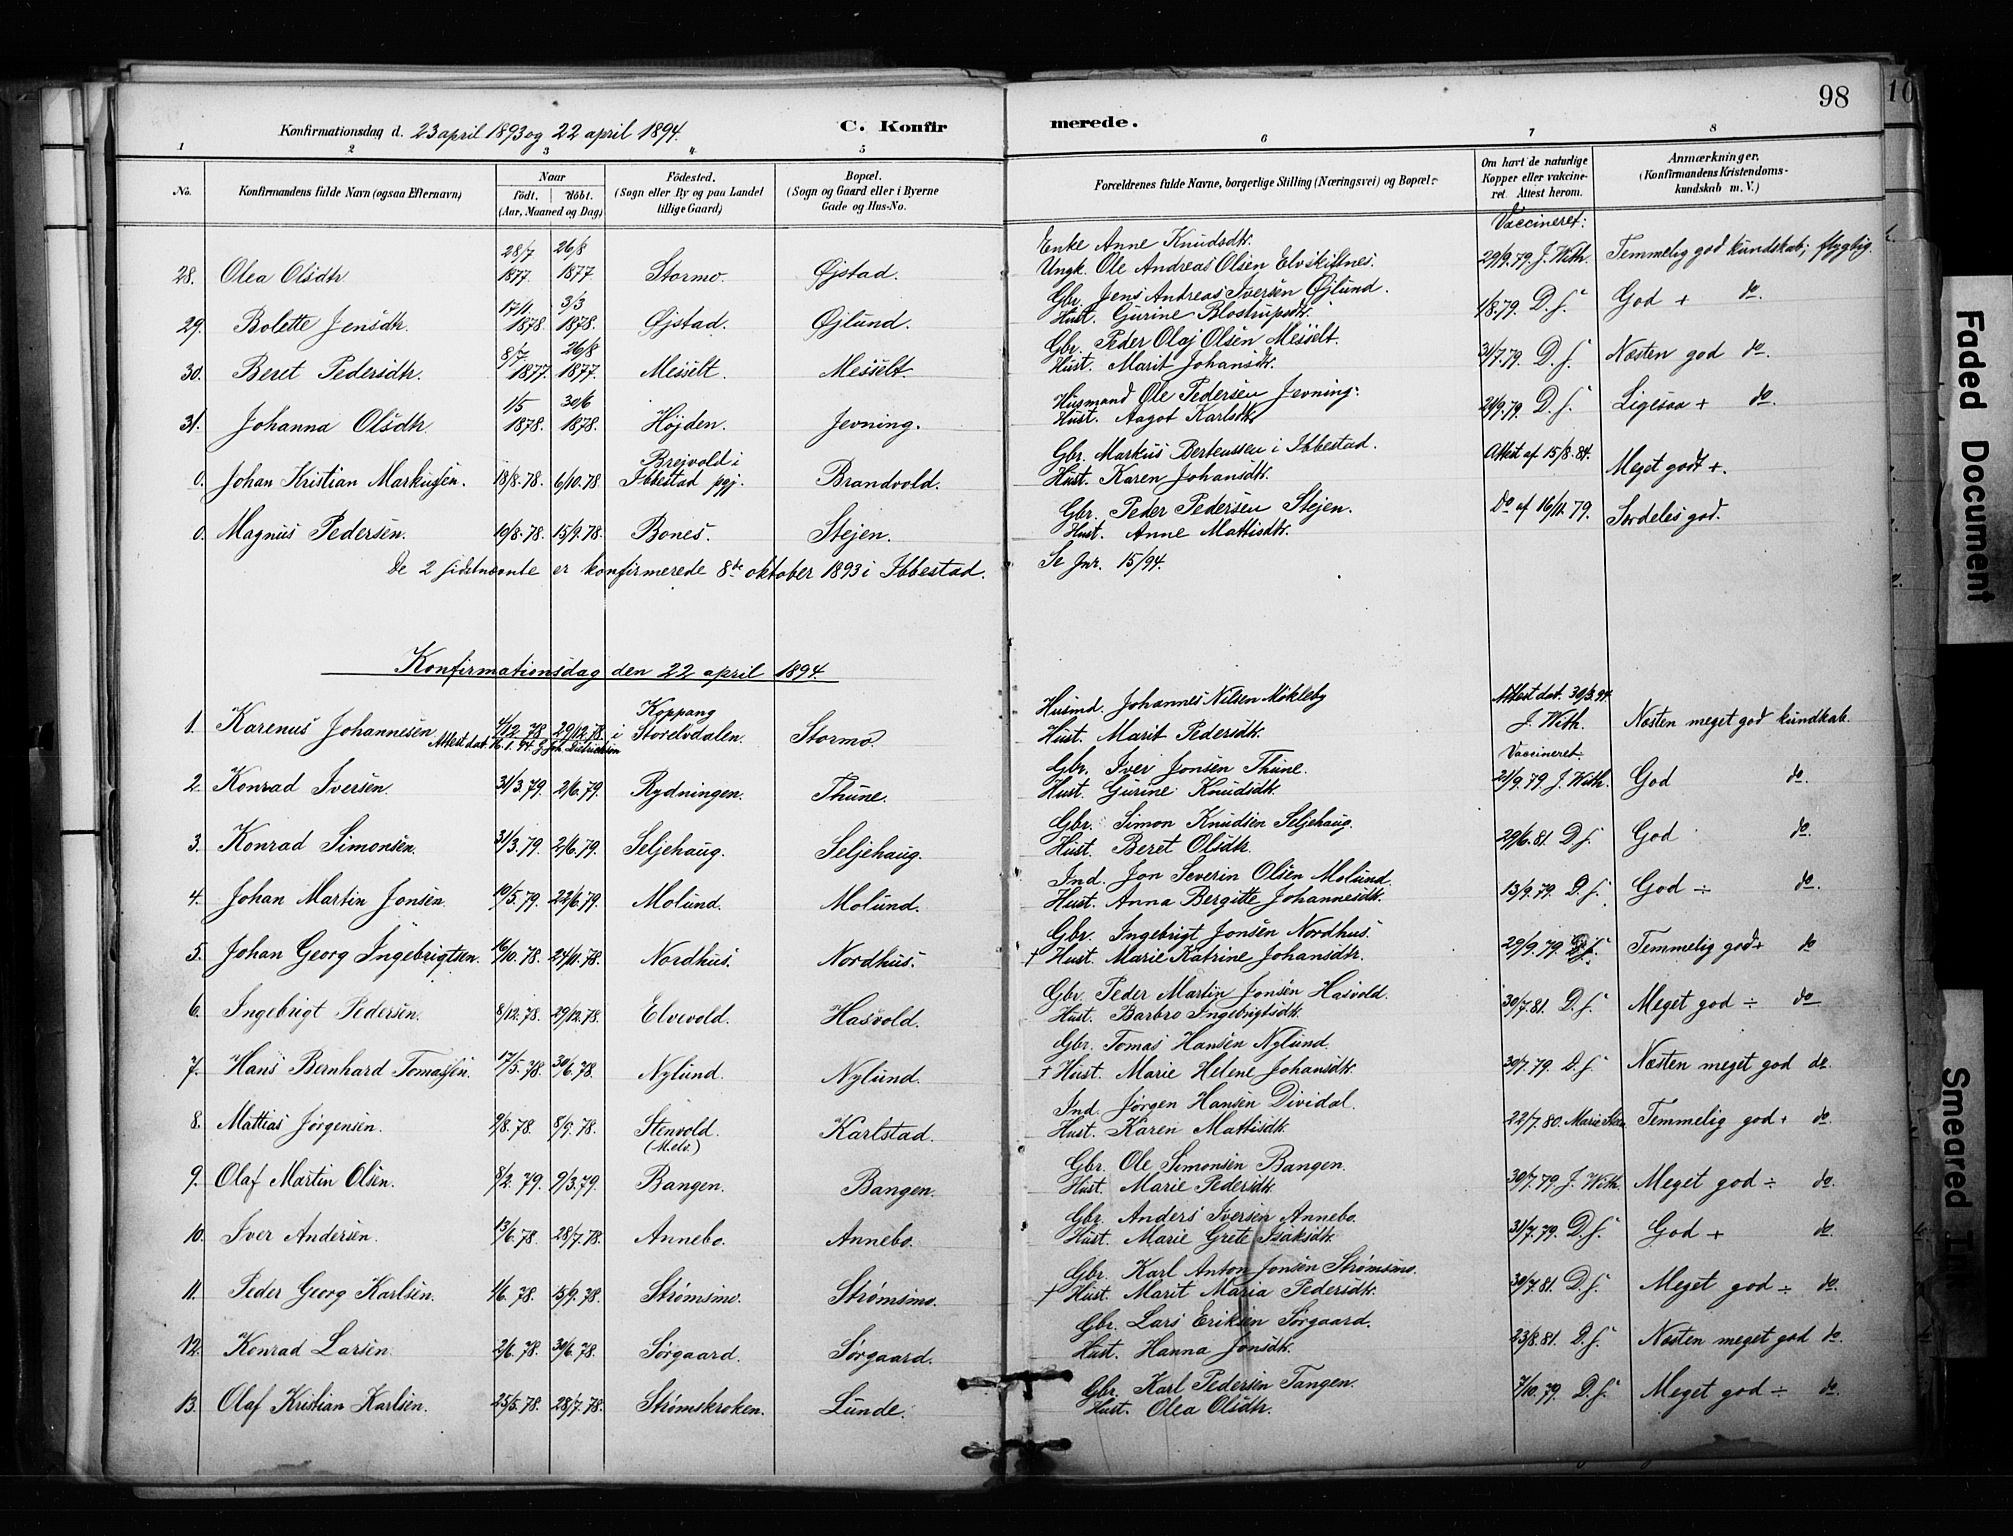 98
10
Konfirmationsdag d. 23 april 1893 og 22 april 1894. C. Konfirmerede.
1 2 3 4 5 6 7 8
No. Konfirmandens fulde Navn (ogsaa Efternavn) Naar født. døbt. (Aar, Maaned og Dag) Fødested. (Sogn eller By og paa Landet tillige Gaard) Bopæl. (Sogn og Gaard eller i Byerne Gade og Hus-No. Forældrenes fulde Navne, borgerlige Stilling (Næringsvei) og Bopæl. Om havt de naturlige Kopper eller vakcineret. Attest herom. Anmærkninger. (Konfirmandens Kristendomskundskab m. V.)
Vaccineret:
28. Olea Olsdtr. 28/7 1877 26/8 1877 Stormo. Øjstad. Enke Anne Knudsdtr. Ungk. Ole Andreas Olsen Elvskiftnes. 29/9.79. J. With. Temmelig god kundskab; flygtig.
29. Bolette Jensdtr. 17/1 1878. 3/3 1878. Øjstad. Øjlund. Gbr. Jens Andreas Iversen Øjlund. Hust. Gurine Blostrupsdtr. 1/8.79. D. s. God + do.
30. Beret Pedersdtr. 8/7 1877. 26/8 1877. Messelt. Messelt. Gbr. Peder Olaj Olsen Messelt. Hust. Marit Johansdtr. 31/7.79. D. s. Næsten god do.
31. Johanna Olsdtr. 1/5 1878. 30/6 1878. Højden. Jevning. Husmand Ole Pedersen Jevning. Hust. Aagot Karlsdtr. 21/9.79. D. s. Ligesaa + do.
0. Johan Kristian Markussen. 18/8.78. 6/10.78 Brejvold i Ibbestad pgj. Brandvold. Gbr. Markus Berteussen i Ibbestad. Hust. Karen Johansdtr. Attest af 15/8.84. Meget godt +.
0. Magnus Pedersen. 10/8.78. 15/9.78. Bones. Stejen. Gbr. Peder Pedersen Stejen. Hust. Anne Mattisdtr. Do af 16/11.79. Særdeles god.
De 2 sidstnævnte er konfirmerede 8de oktober 1893 i Ibbestad. Se Jnr. 15/94.
Konfirmationsdag den 22 april 1894.
1. Karenus Johannesen 4/12.78 29/12.78 Koppang i Storelvdalen. Stormo. Husmd. Johannes Nilsen Møkleby Hust. Marit Pedersdtr. Attest dat. 30/3.94. J. With. Næsten meget god kundskab.
Vaccineret.
2. Konrad Iversen. 31/3.79. 2/6.79. Rydningen. Thune. Gbr. Iver Jonsen Thune. Hust. Gurine Knudsdtr. 21/9.79. J. With. God do.
3. Konrad Simonsen. 31/3.79. 2/6.79. Seljehaug. Seljehaug. Gbr. Simon Knudsen Seljehaug. Hust. Beret Olsdtr. 29/6.81. D. s. God do.
4. Johan Martin Jonsen. 10/5.79. 22/6.79. Molund. Molund. Ind. Jon Severin Olsen Molund. Hust. Anna Bergitte Johannesdtr. 13/9.79. D. s. God ÷ do.
5. Johan Georg Ingebrigtsen. 16/10.78. 24/11.78. Nordhus. Nordhus. Gbr. Ingebrigt Jonsen Nordhus. † Hust. Marie Katrine Johansdtr. 29/9.79. D. s. Temmelig god + do
6. Ingebrigt Pedersen. 8/12.78. 29/12.78. Elvevold. Hasvold. Gbr. Peder Martin Jonsen Hasvold. Hust. Barbro Ingebrigtsdtr. 30/7.81. D. s. Meget god ÷ do
7. Hans Bernhard Tomassen. 17/5.78. 30/6.78. Nylund. Nylund. Gbr. Tomas Hansen Nylund. † Hust. Marie Helene Johansdtr. 30/7.79. D. s. Næsten meget god do.
8. Mattias Jørgensen. 9/8.78. 8/9.78. Stenvold. (Melv.) Karlstad. Ind. Jørgen Hansen Dividal. Hust. Karen Mattisdtr. 22/7.80. Marie Temmelig god + do.
9. Olaf Martin Olsen. 8/2.79. 9/3.79. Bangen. Bangen. Gbr. Ole Simonsen Bangen. Hust. Marie Pedersdtr. 30/7.79. J. With. Meget god ÷ do.
10. Iver Andersen. 13/6.78. 28/7.78. Annebo. Annebo. Gbr. Anders Iversen Annebo. Hust. Marie Grete Isaksdtr. 31/7.79. D. s. God + do.
11. Peder Georg Karlsen. 4/6.78. 15/9.78. Strømsmo. Strømsmo. Gbr. Karl Anton Jonsen Strømsmo. † Hust. Marit Maria Pedersdtr. 30/7.81. D. s. Meget god ÷ do.
12. Konrad Larsen. 2/6.78. 30/6.78. Sørgaard. Sørgaard. Gbr. Lars Eriksen Sørgaard. Hust. Hanna Jonsdtr. 23/8.81. D. s. Næsten meget god do.
13. Olaf Kristian Karlsen. 25/5.78. 28/7.78. Strømskroken. Lunde. Gbr. Karl Pedersen Tangen. Hust. Olea Olsdtr. 7/10.79. D. s. Meget god ÷ do.
Faded Document
Smeared